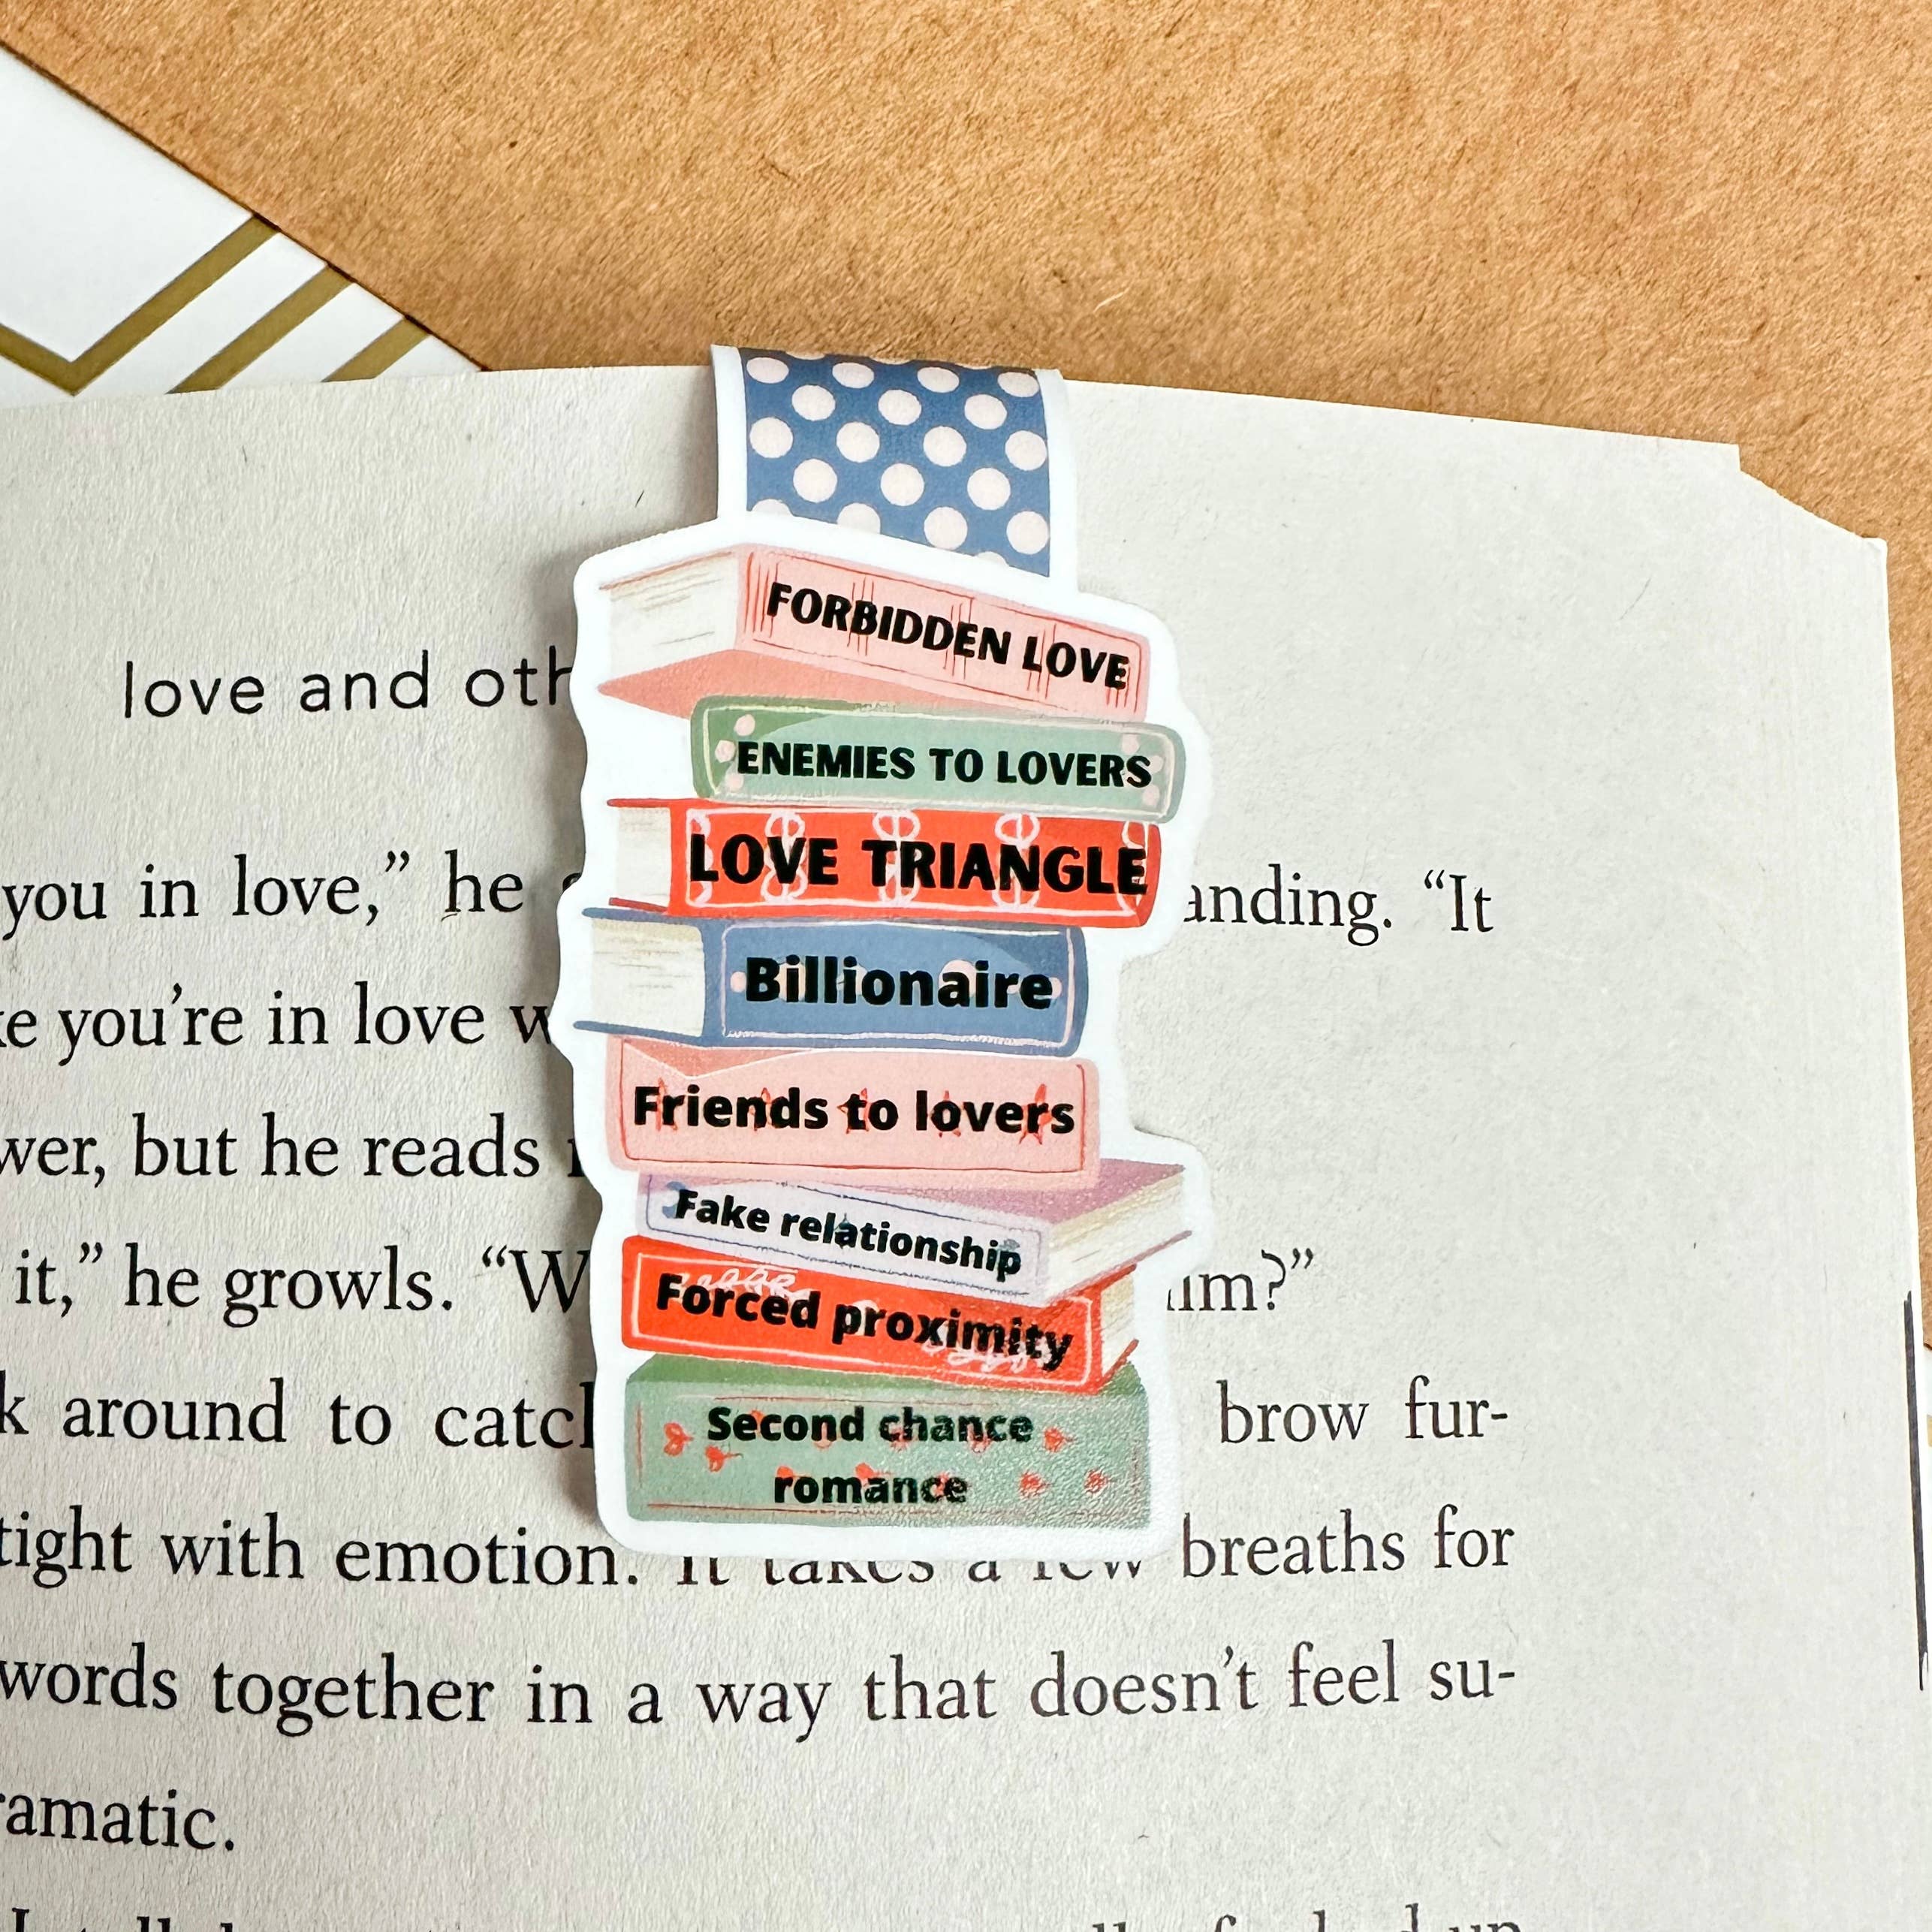 love and
FORBIDDEN LOVE
ENEMIES TO LOVERS
LOVE TRIANGLE
Billionaire
Friends to lovers
Fake relationship
Forced proximity
Second chance
romance
you in love,” he
“It
you’re in love
but he reads
it,” he growls.
around to
brow fur-
tight with emotion. It takes a few breaths for
words together in a way that doesn’t feel su-